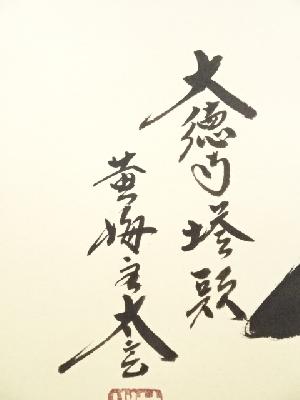 大徳寺塔頭
黄梅玄太玄